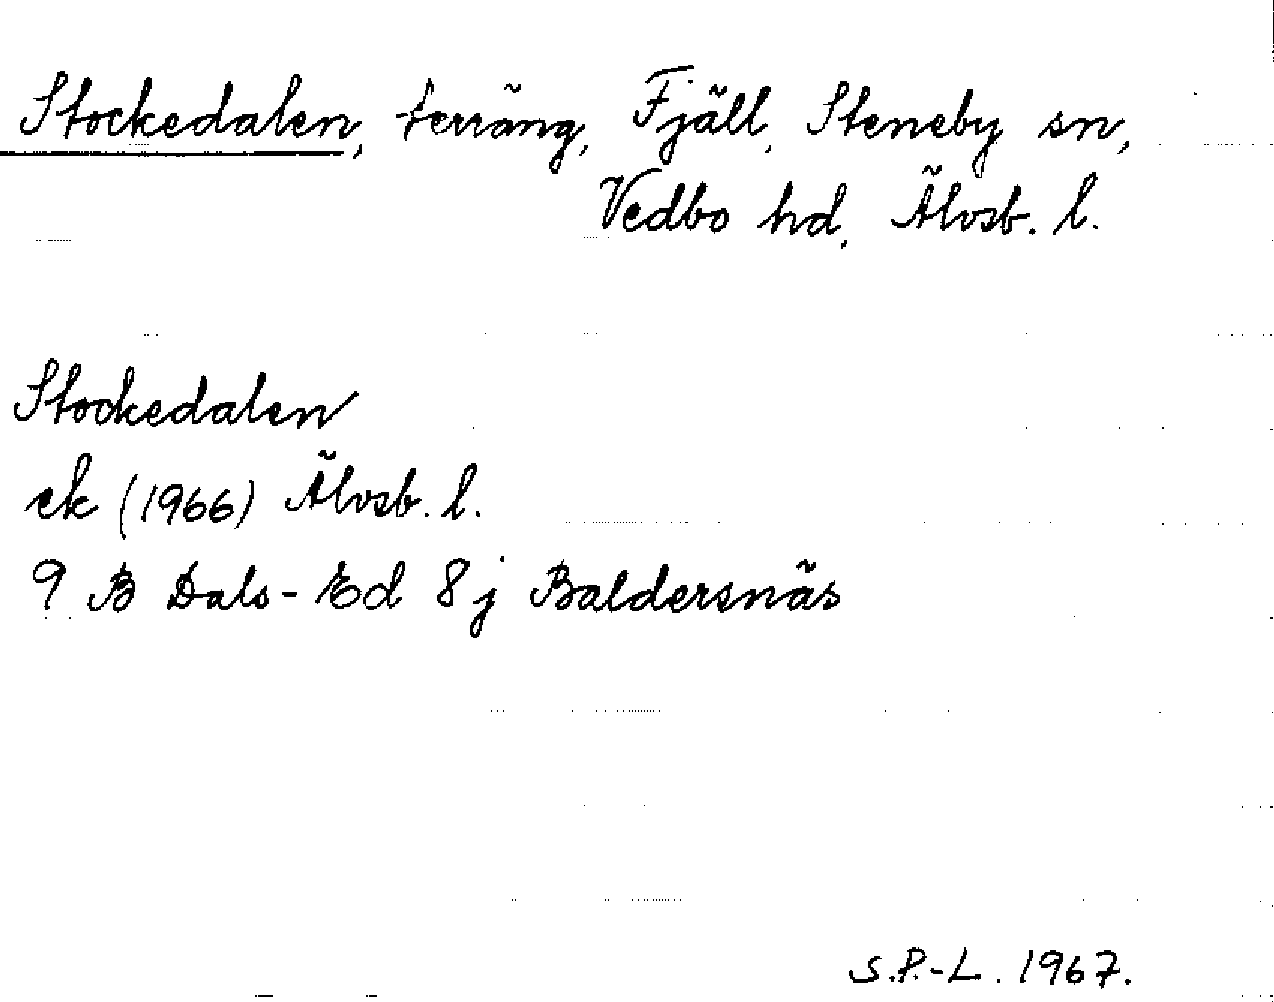 Stockedalen, terräng, Fjäll, Steneby sn,
Vedbo hd, Älvsb. l.
Stockedalen
ek (1966) Älvsb. l.
9 B Dals-Ed 8j Baldersnäs
S.P.-L. 1967.